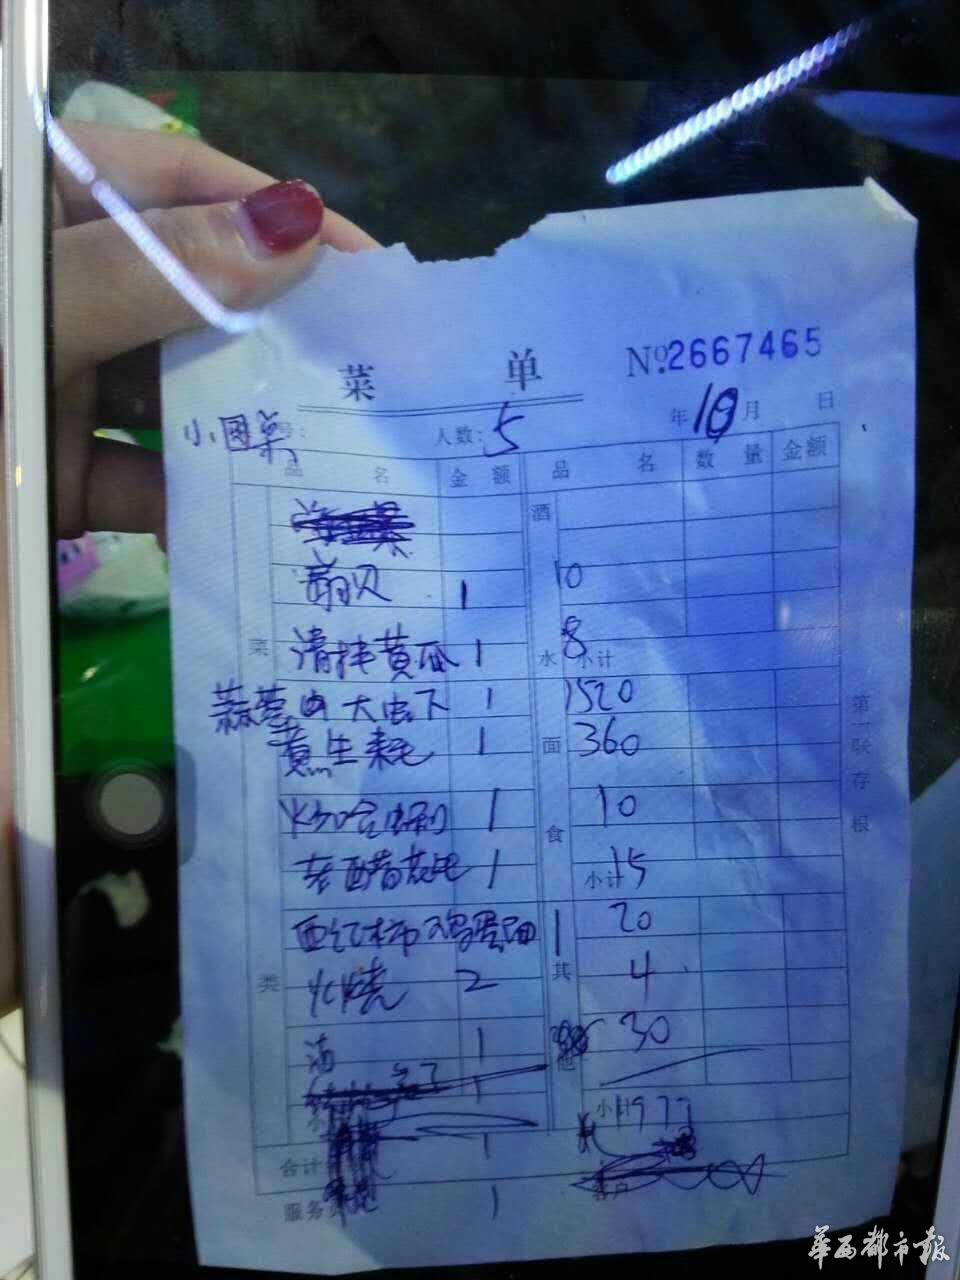 菜 单 №2667465
小圆桌 号: 人数: 5 年 10 月 日
品 名 金 额 品 名 数 量 金额
酒
扇贝 1 10
菜 清拌黄瓜 1 水 小计 8
蒜蓉 大虾 1 1520
生蚝 1 面 360
第一联存根
蛤蜊 1 食 10
老醋花生 1 小计 15
西红柿鸡蛋面 1 20
类 火烧 2 其 4
酒 1 他 30
小计 1977
合计 1
服务 1 客户
华西都市报